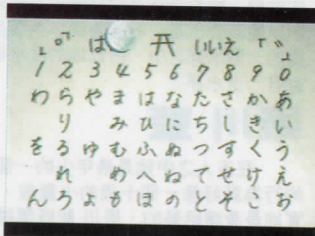 は ⛩ いいえ
1 2 3 4 5 6 7 8 9 0
わ ら や ま は な た さ か あ
り み ひ に ち し き い
を る ゆ む ふ ぬ つ す く う
れ め へ ね て せ け え
ん ろ よ も ほ の と そ こ お